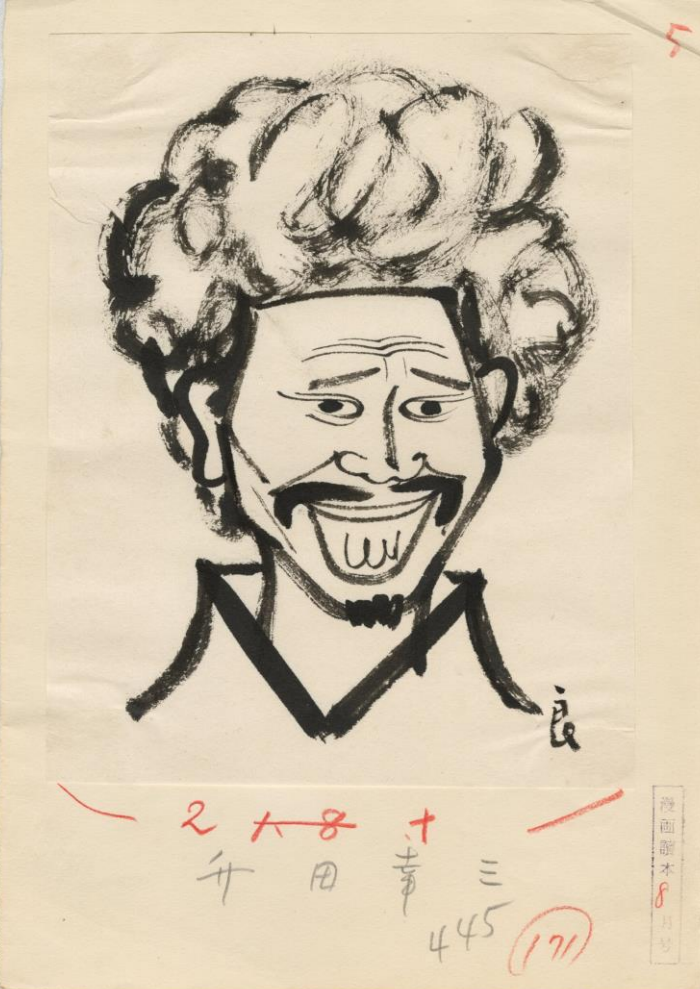 5
良
2 寸
升田幸三
445
171
漫画讀本8月号